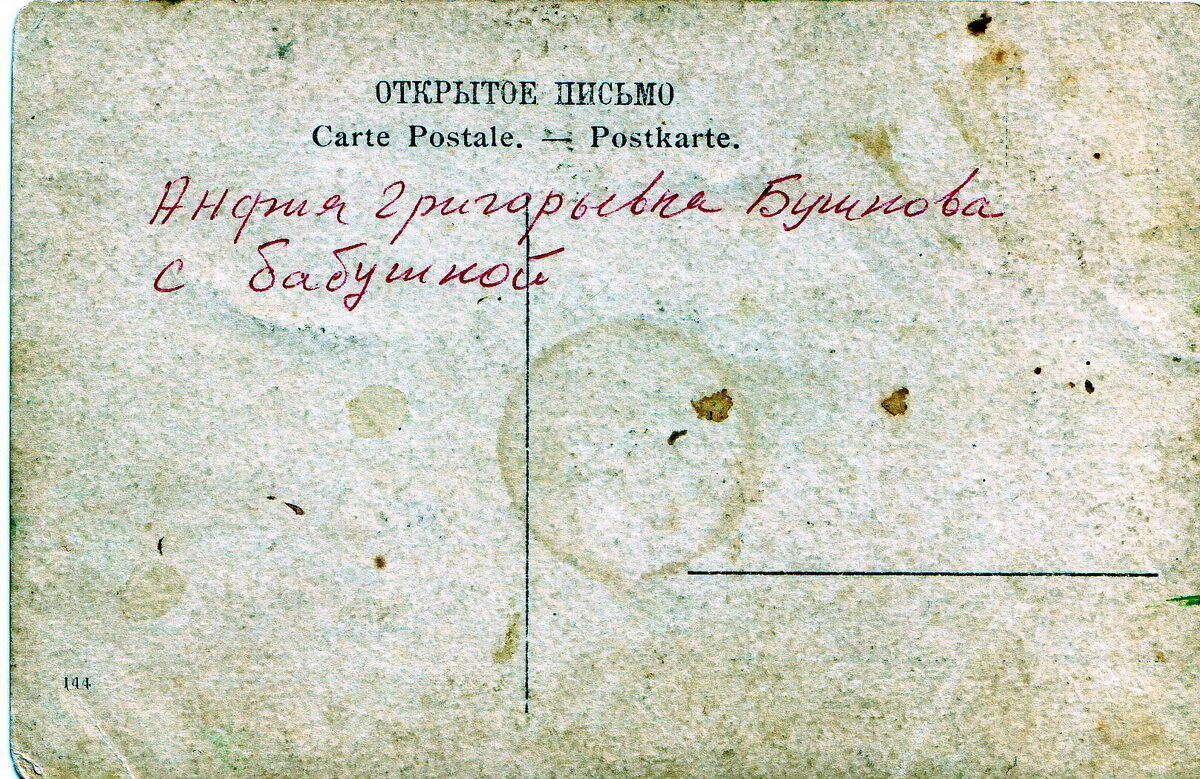 ОТКРЫТОЕ ПИСЬМО
Carte Postale. — Postkarte.
Анфия Григорьевна Бушкова
с бабушкой
144